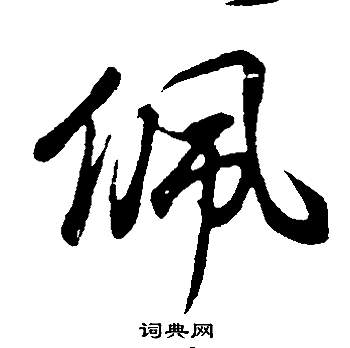 佩
词典网